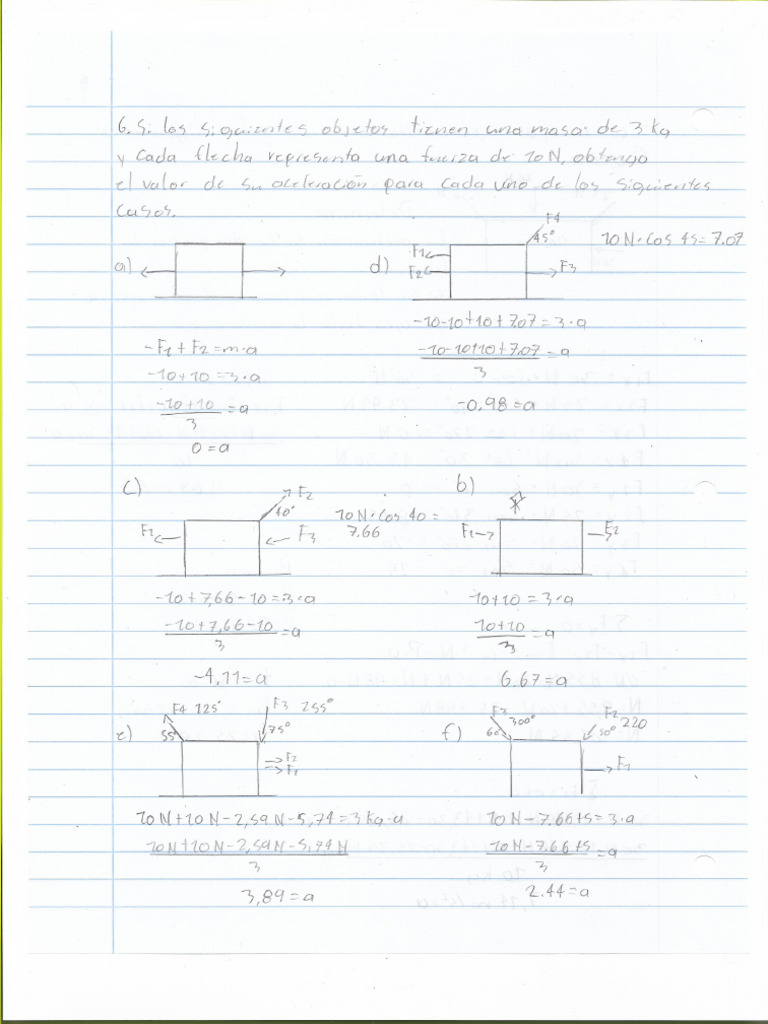 6. Si los siguientes objetos tienen una masa de 3 kg
y cada flecha representa una fuerza de 10 N, obtengo
el valor de su aceleración para cada uno de los siguientes
casos.
a)
-F1 + F2 = m·a
-10+10 = 3·a
-10+10 / 3 = a
0 = a
d) F1 F2 F3 F4 45° 10 N·Cos 45 = 7.07
-10-10+10+7.07 = 3·a
-10-10+10+7.07 / 3 = a
-0.98 = a
c) F1 F2 40° F3 10 N·Cos 40 =
7.66
-10+7,66-10 = 3·a
-10+7,66-10 / 3 = a
-4.11 = a
b) F1 F2
10+10 = 3·a
10+10 / 3 = a
6.67 = a
e) F4 125° 55° F3 255° 75° F2 F1
10N+10N-2,59N-5,74 = 3 kg·a
10N+10N-2,59N-5,74N / 3
3,89 = a
f) F3 300° 60 F2 220 50° F1
10 N-7.66+5 = 3·a
10 N-7.66+5 / 3 = a
2.44 = a